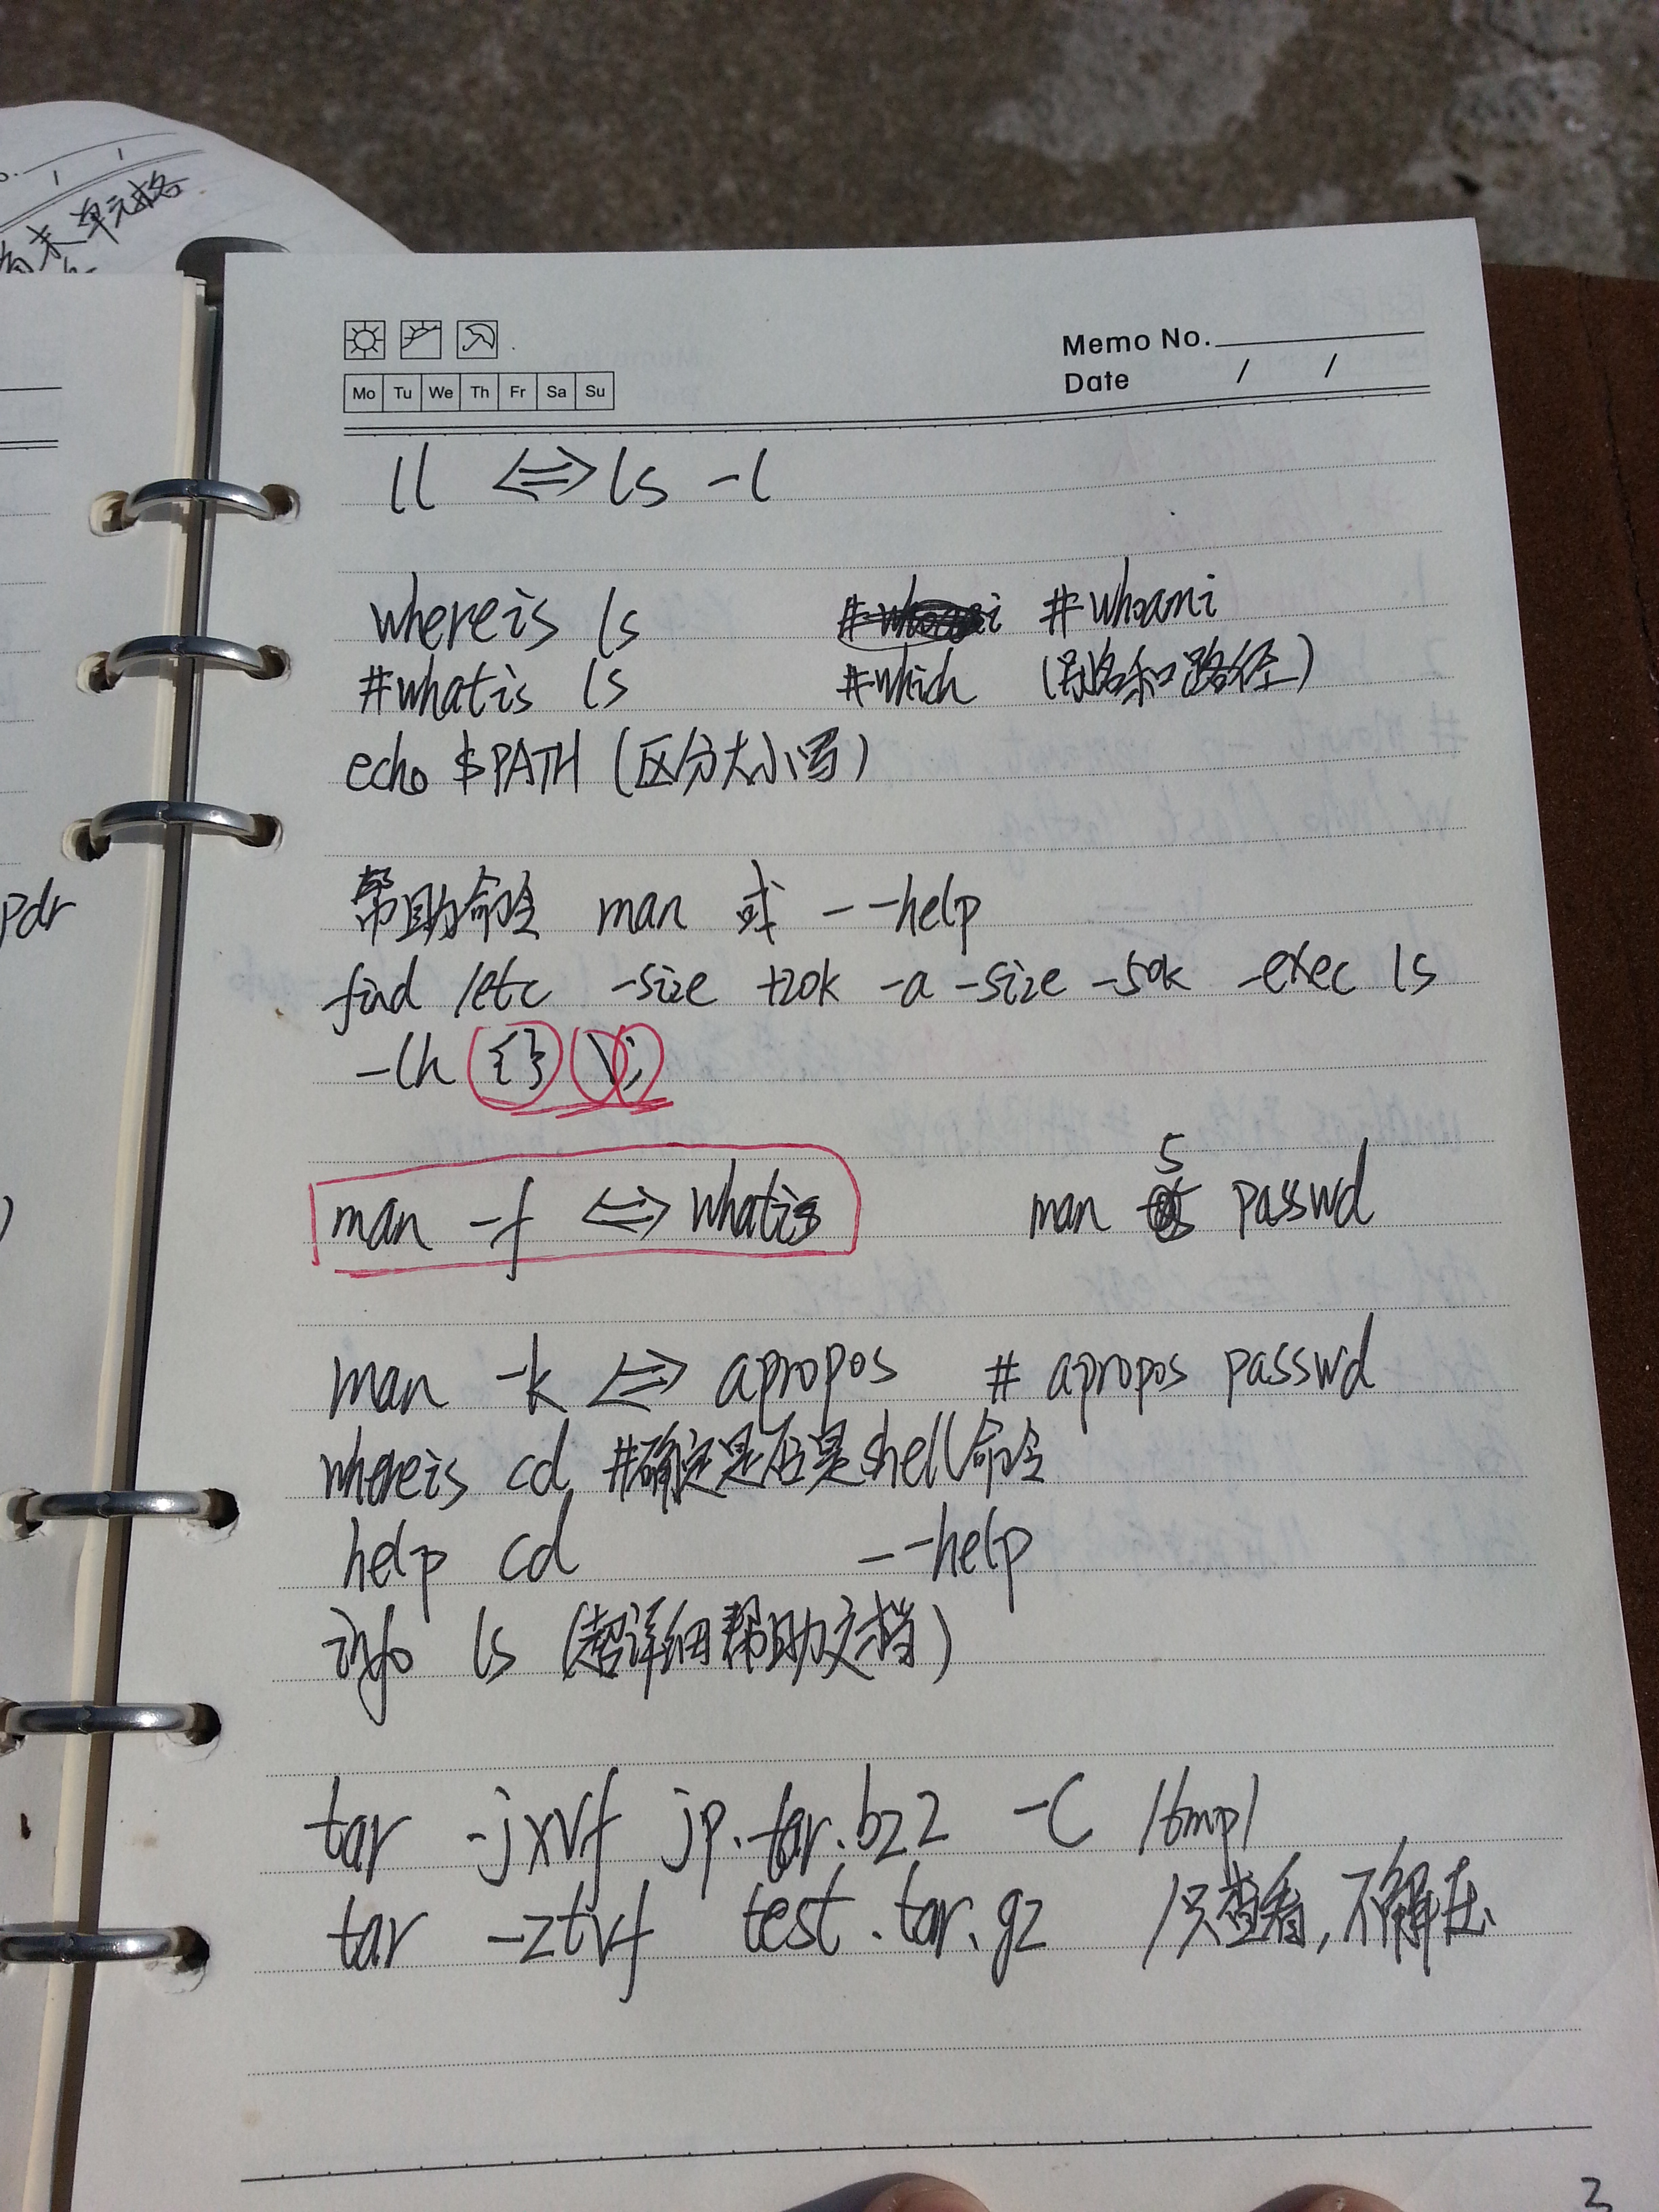 首末单元格
Memo No.
Mo Tu We Th Fr Sa Su
Date / /
ll <=> ls -l
whereis ls #whoami
#whatis ls #which (别名和路径)
echo $PATH (区分大小写)
帮助命令 man 或 --help
find /etc -size +20k -a -size -50k -exec ls
-lh {} \;
man -f <=> whatis man 5 passwd
man -k <=> apropos # apropos passwd
whereis cd #确定是否是shell命令
help cd --help
info ls (超详细帮助文档)
tar -jxvf jp.tar.bz2 -C /tmp/
tar -ztvf test.tar.gz /只查看,不解压
pdr
3